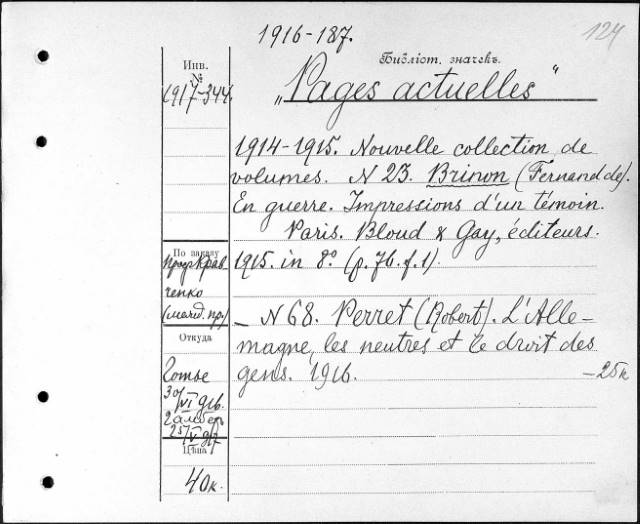 1916-187.
124
Библіот. значекъ.
Инв. №
1917-344.
„Pages actuelles“
1914-1915. Nouvelle collection de
volumes. N 23. Brinon (Fernand de).
En guerre. Impressions d'un témoin.
Paris. Bloud & Gay, éditeurs.
1915. in 8º (p. 76. f. 1).
По заказу
проф Крав
ченко
_ N 68. Perret (Robert). L'Alle-
magne, les neutres et le droit des
gens. 1916.
-25к
Откуда
Готье
30/VI 916.
25/V 917
Цѣна
40к.